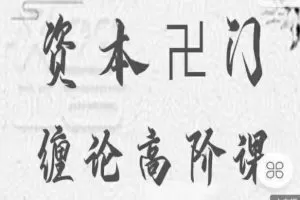 资本卍门
缠论高阶课